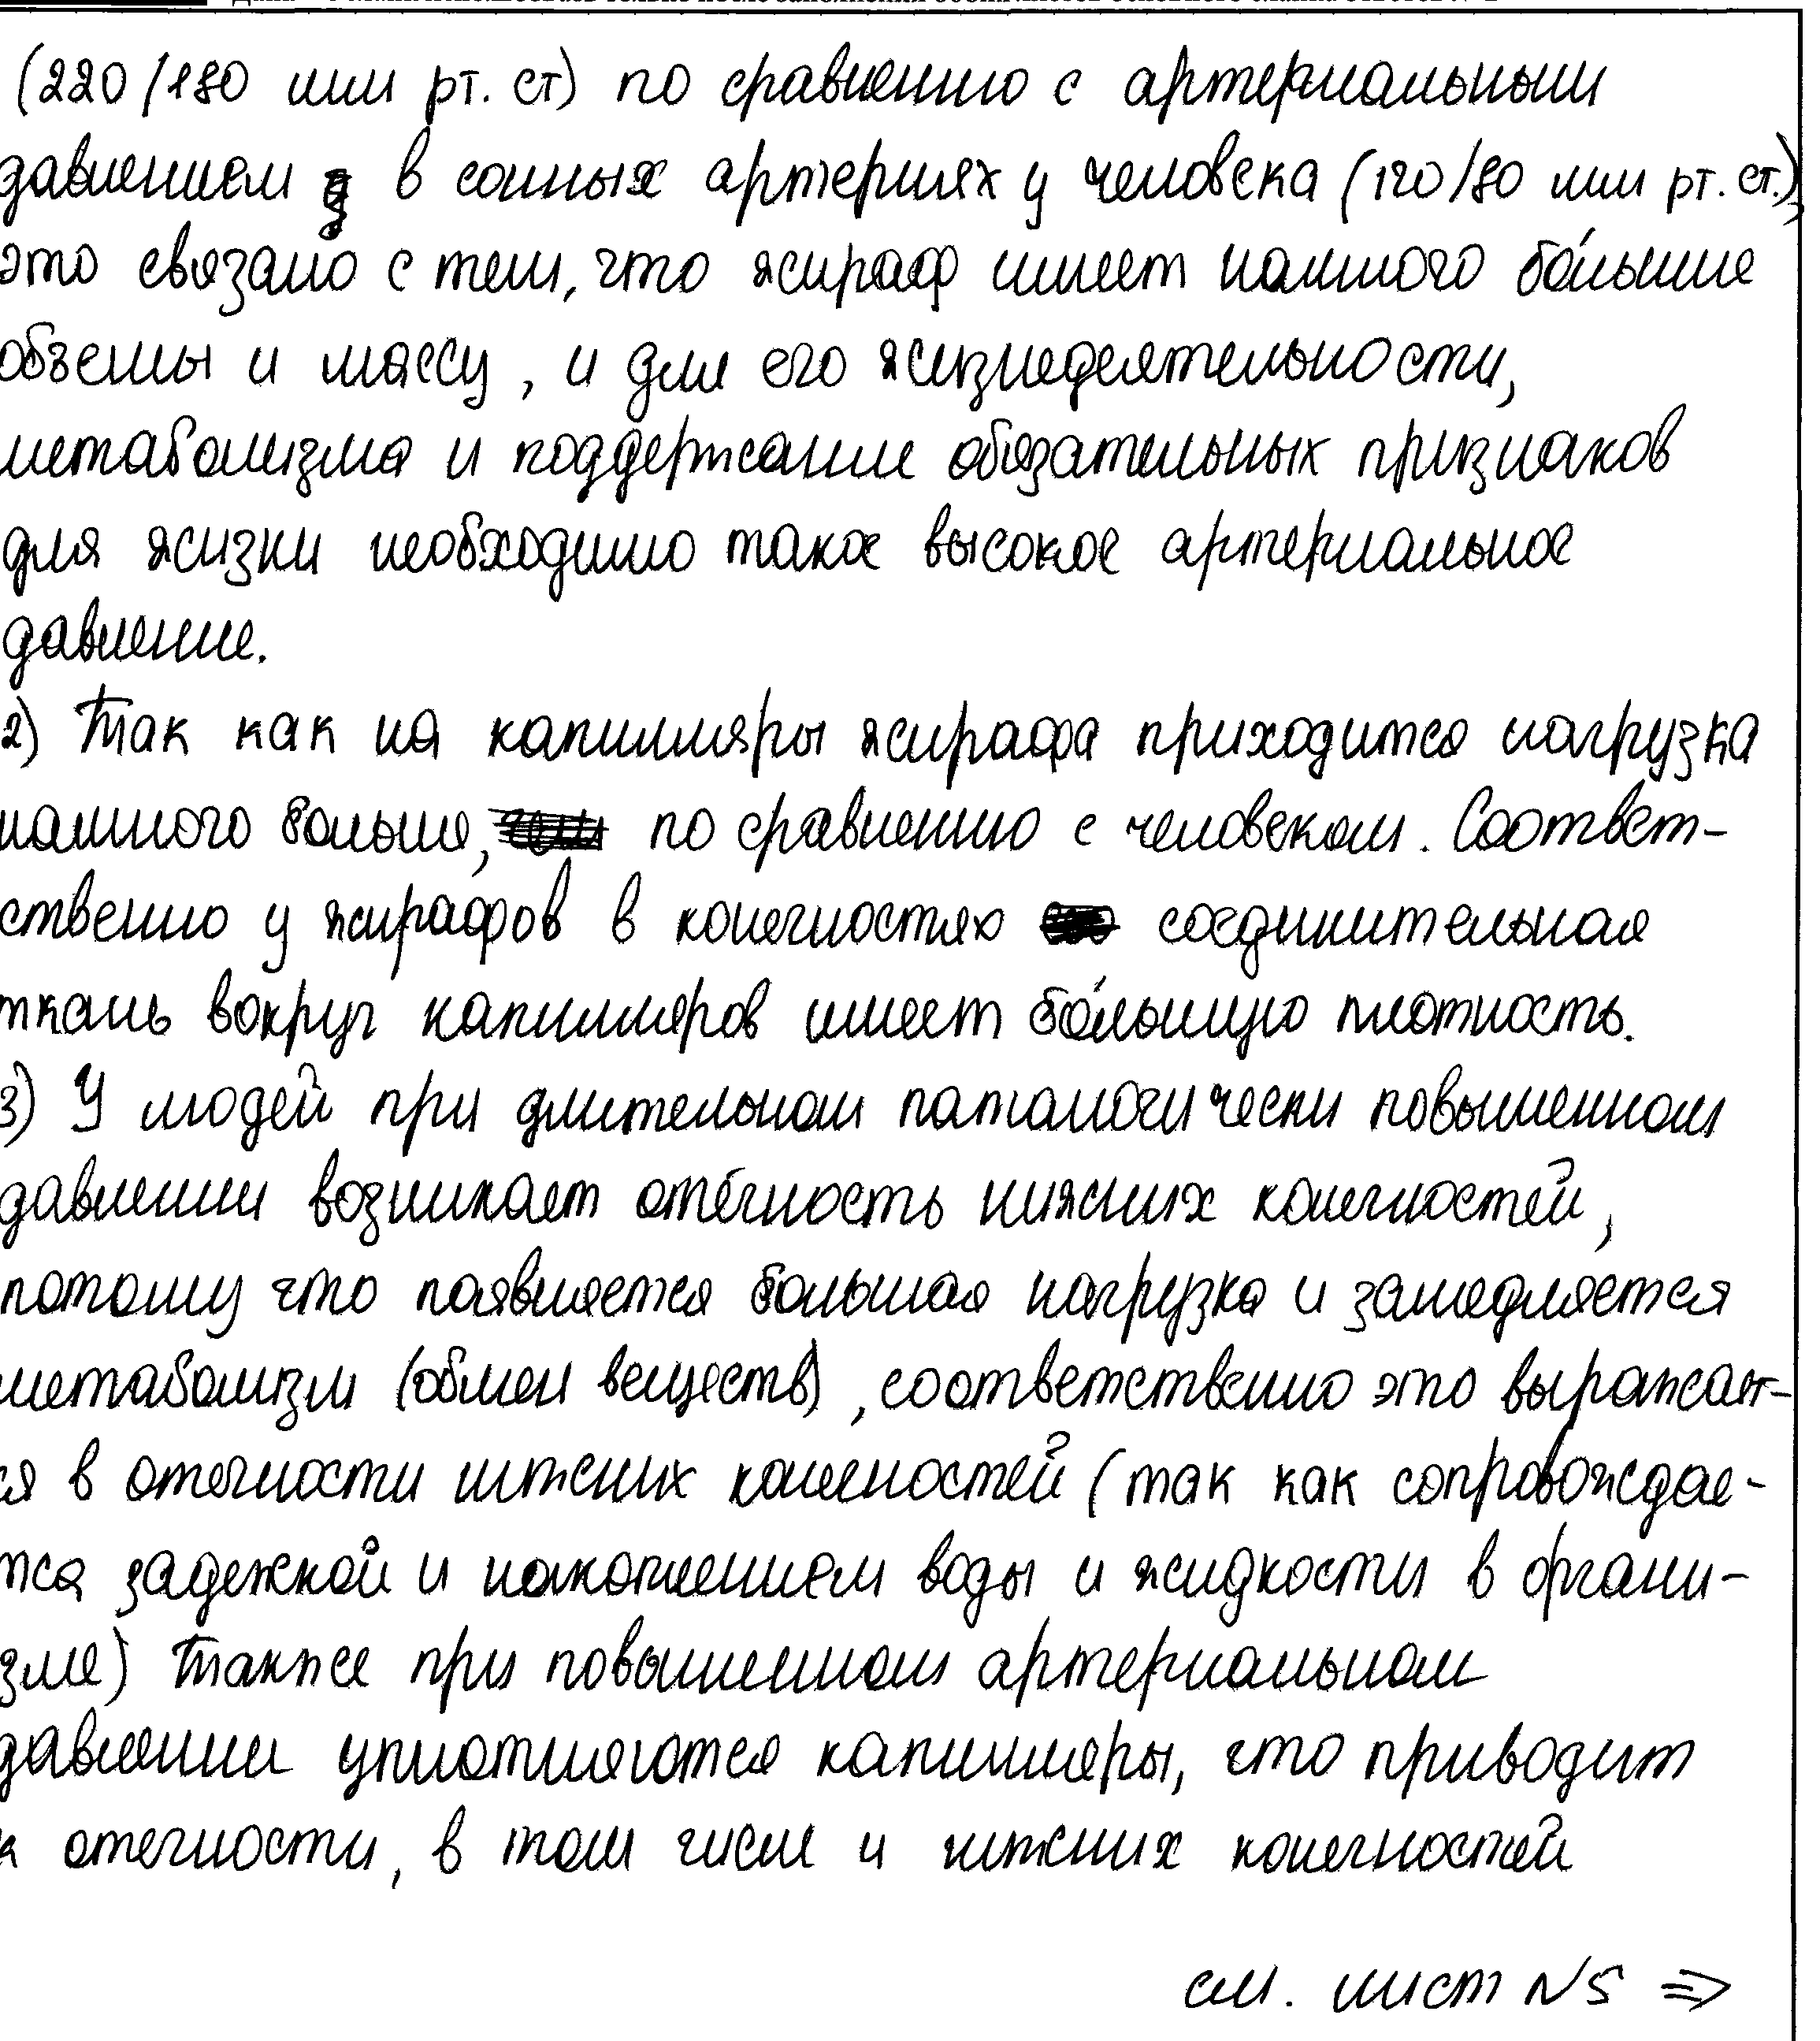 (220/180 мм рт. ст) по сравнению с артериальным
давлением в сонных артериях у человека (120/80 мм рт. ст.),
это связано с тем, что жираф имеет намного бо́льшие
объемы и массу, и для его жизнедеятельности,
метаболизма и поддержание обязательных признаков
для жизни необходимо такое высокое артериальное
давление.
2) Так как на капилляры жирафа приходится нагрузка
намного больше, по сравнению с человеком. Соответ-
ственно у жирафов в конечностях соединительная
ткань вокруг капилляров имеет бо́льшую плотность.
3) У людей при длительном патологически повышенном
давлении возникает отёчность нижних конечностей,
потому что появляется большая нагрузка и замедляется
метаболизм (обмен веществ), соответственно это выражает-
ся в отечности нижних конечностей (так как сопровождае-
тся задежкой и накоплением воды и жидкости в органи-
зме) Также при повышенном артериальном
давлении уплотняются капилляры, что приводит
к отечности, в том числе и нижних конечностей
см. лист N5 ⇒